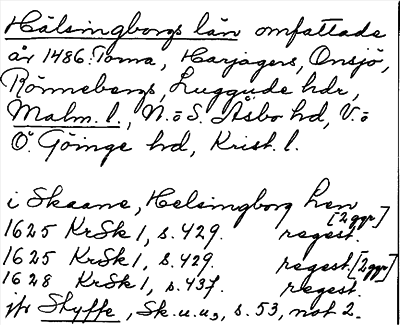 Hälsingborgs län omfattade
år 1486: Torna, Harjagers, Onsjö,
Rönnebergs, Luggude hdr,
Malm. l., N. o S. Åsbo hd, V. o
Ö. Göinge hd, Krist. l.
i Skaane, Helsingborg len
1625 KrSk 1, s. 429. regest. [2ggr]
1625 KrSk 1, s. 429. regest. [2ggr]
1628 KrSk 1, s. 437. regest.
jfr Styffe, Sk.u.u., s. 53, not 2.